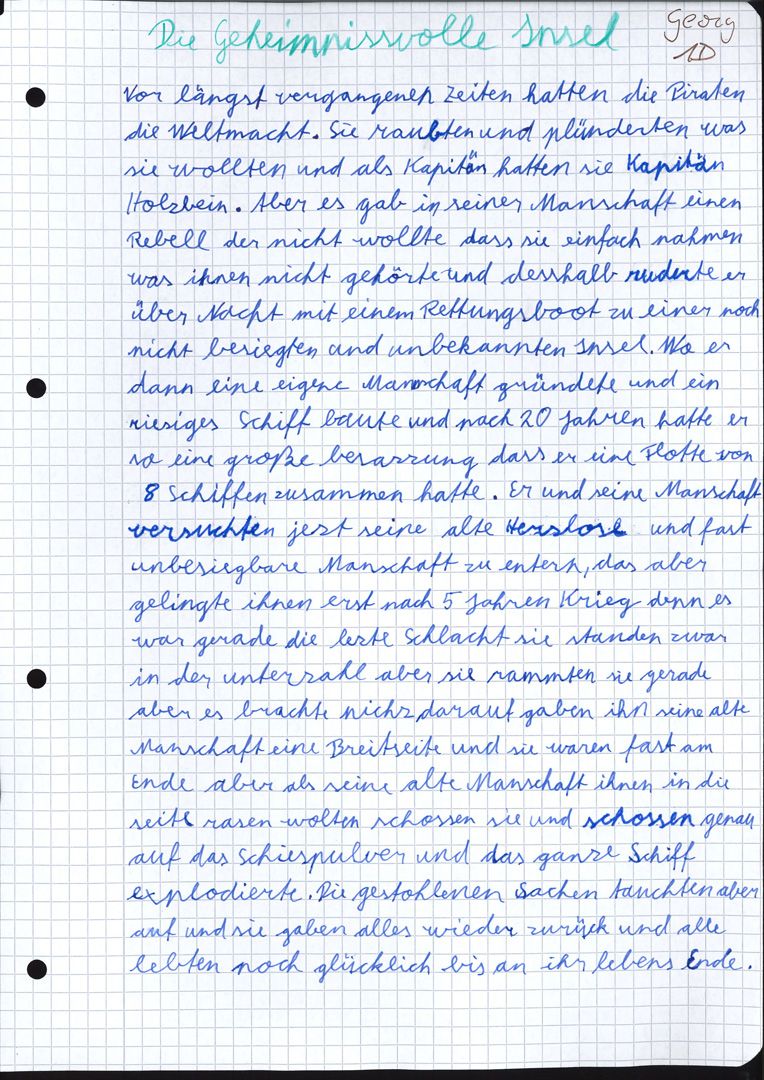 Die Geheimnissvolle Insel
Georg
1D
Vor längst vergangenen Zeiten hatten die Piraten
die Weltmacht. Sie raubten und plünderten was
sie wollten und als Kapitän hatten sie Kapitän
Holzbein. Aber es gab in seiner Manschaft einen
Rebell der nicht wollte dass sie einfach nahmen
was ihnen nicht gehörte und desshalb ruderte er
über Nacht mit einem Rettungsboot zu einer noch
nicht besiegten und unbekannten Insel. Wo er
dann eine eigene Mannschaft gründete und ein
riesiges Schiff baute und nach 20 Jahren hatte er
so eine große besazzung dass er eine Flotte von
8 Schiffen zusammen hatte. Er und seine Manschaft
versuchten jezt seine alte Herzlose und fast
unbesiegbare Manschaft zu entern, das aber
gelingte ihnen erst nach 5 Jahren Krieg denn es
war gerade die lezte Schlacht sie standen zwar
in der unterzahl aber sie rammten sie gerade
aber es brachte nichz darauf gaben ihn seine alte
Manschaft eine Breitseite und sie waren fast am
Ende aber als seine alte Manschaft ihnen in die
seite rasen wolten schossen sie und schossen genau
auf das Schiespulver und das ganze Schiff
explodierte. Die gestohlenen Sachen tauchten aber
auf und sie gaben alles wieder zurück und alle
lebten noch glücklich bis an ihr lebens Ende.